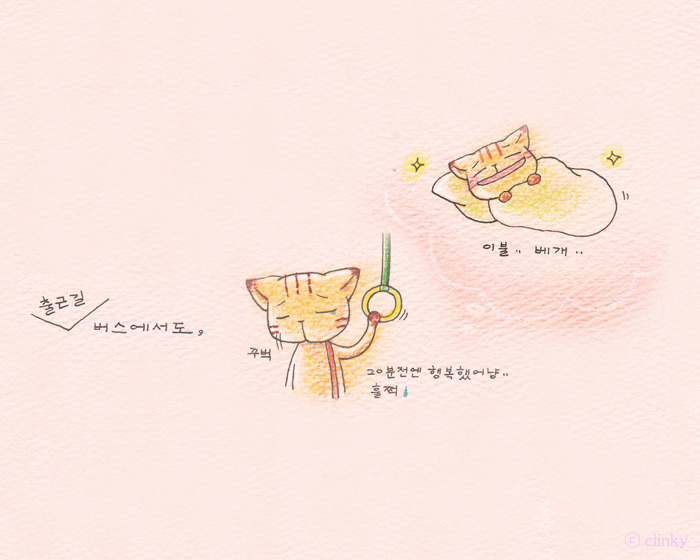 출근길
버스에서도,
꾸벅
20분전엔 행복했어냥..
훌쩍
이불.. 베개..
ⓒ clinky